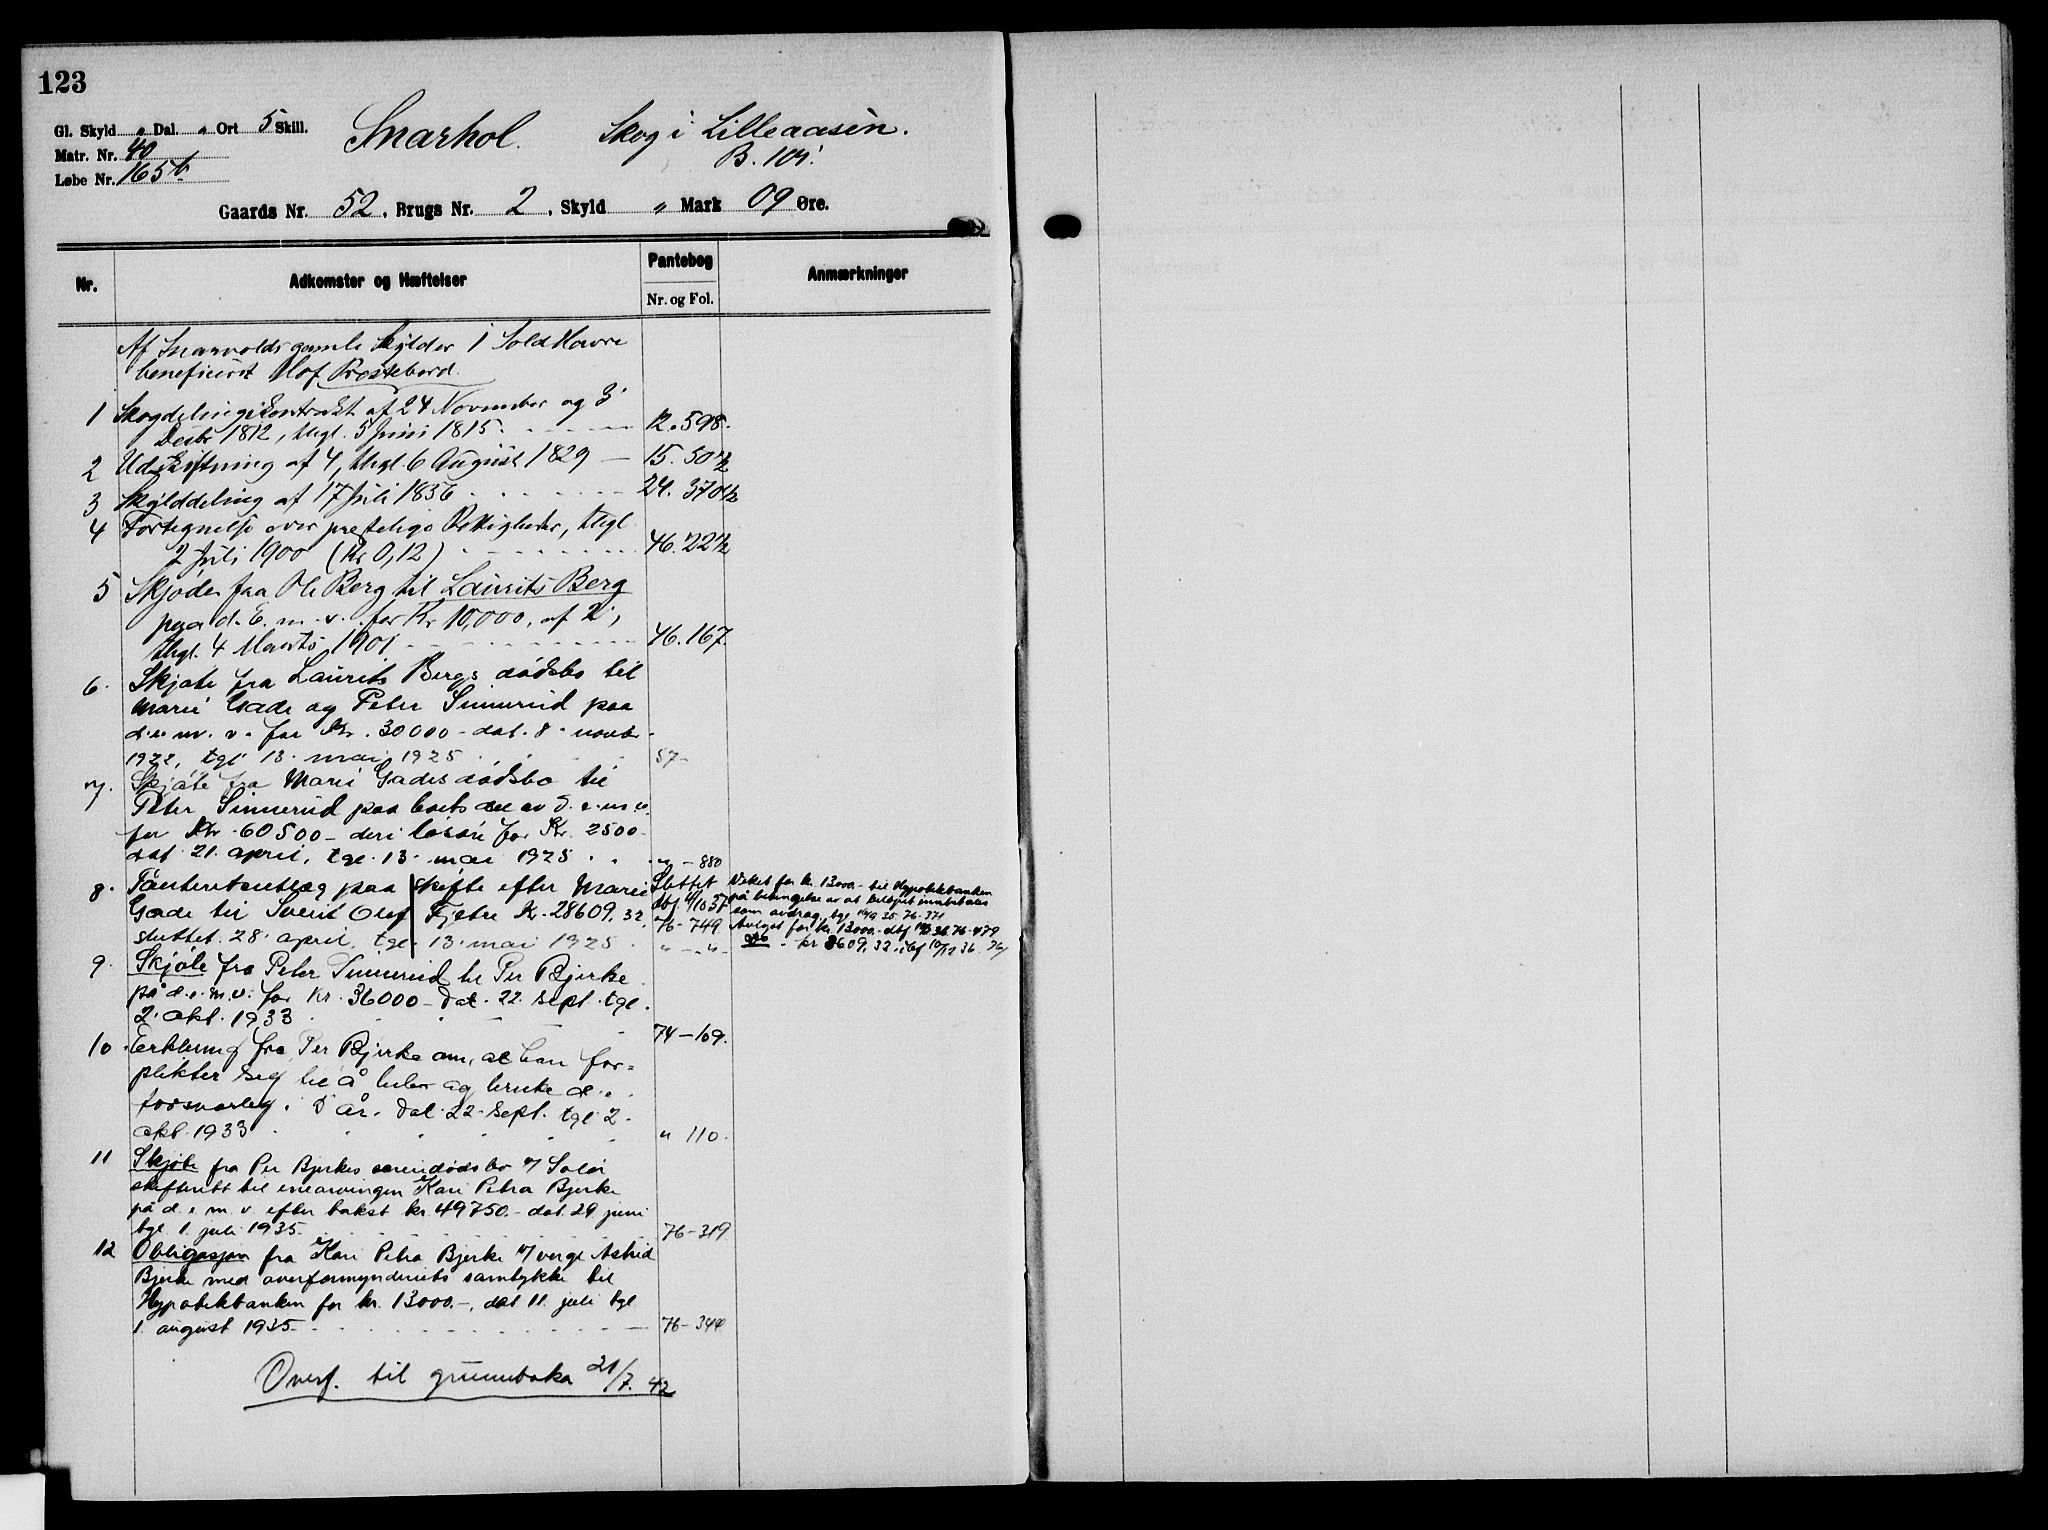 123
Gl. Skyld „ Dal. „ Ort 5 Skill.
Matr. Nr. 40
Løbe Nr. 165b
Snarhol. Skog i Lilleaasen.
B. 104.
Gaards Nr. 52, Brugs Nr. 2, Skyld „ Mark 09 Øre.
Nr. Adkomster og Hæftelser Pantebog Anmærkninger
Nr. og Fol.
Af Snarvolds gamle Skylder 1 Sold Havre
beneficeret Hof Prestebord.
1 Skogdelingskontrakt af 24 November og 3
Decbr 1812, thgl. 5 Juni 1815. 12.598.
2 Udskiftning af 4, thgl. 6 August 1829 15.50½
3 Skylddeling af 17 Juli 1836 24.370½
4 Fortegnelse over prestelige Rettigheder, thgl.
2 Juli 1900 (Kr 0,12) 46.22½
5 Skjøde fra Ole Berg til Laurits Berg
paa d. E. m. v. for Kr 10,000, af 2,
thgl. 4 Marts 1901 46.167.
6. Skjøte fra Laurits Bergs dødsbo til
Marie Gade og Peter Sinnerud paa
d. e. m. v. for Kr. 30000 - dat. 8. novbr.
1922, tgl 13. mai 1925 57-
7. Skjøte fra Marie Gades dødsbo til
Peter Sinnerud paa boets del av d. e. m. v.
for Kr. 60500 - deri løsøre for Kr. 2500-
dat 21. april, tgl. 13. mai 1925 „ - 880
8. Panteretsutlæg paa skifte efter Marie
Gade til Sverit Olof Fjetre Kr. 28609.32
sluttet 28. april, tgl. 13. mai 1925
Slettet
dbf 4/10 37
76-749
„ - „ -
Veket for kr. 13000.- til Hypotekbanken
på betingelse av at beløpet innbetales
som avdrag, tgl. 35. 76-371
Avlyst for kr. 13000.- dbf 36 76-479
do - kr 8609,32. dbf 10/12 36. 76/
9. Skjøte fra Peter Sinnerud til Per Bjerke
på d. e. m. v. for kr. 36000 - dat. 22. sept. tgl.
2. okt. 1933 74-109.
10. Erklæring fra Per Bjerke om, at han for=
plikter seg til å bebo og bruke d. e.
forsvarleg i 5 år. Dat. 22. sept. tgl. 2.
okt. 1933 „ 110.
11 Skjøte fra Per Bjerkes dødsbo v/ Solør
skifterett til enearvingen Kari Petra Bjerke
på d. e. m. v. efter takst kr. 49750.- dat. 29 juni
tgl 1. juli 1935. 76-319
12 Obligasjon fra Kari Petra Bjerke v/ verge Astrid
Bjerke med overformynderiets samtykke til
Hypotekbanken for kr. 13000.-, dat 11. juli tgl
1. august 1935. 76-344
Overf. til grunnboka 21/7. 42